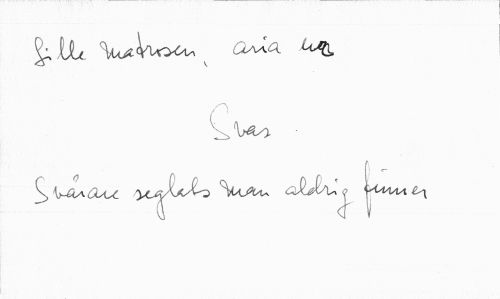 Lille Matrosen, aria ur
Svas
Svårare seglats man aldrig finner